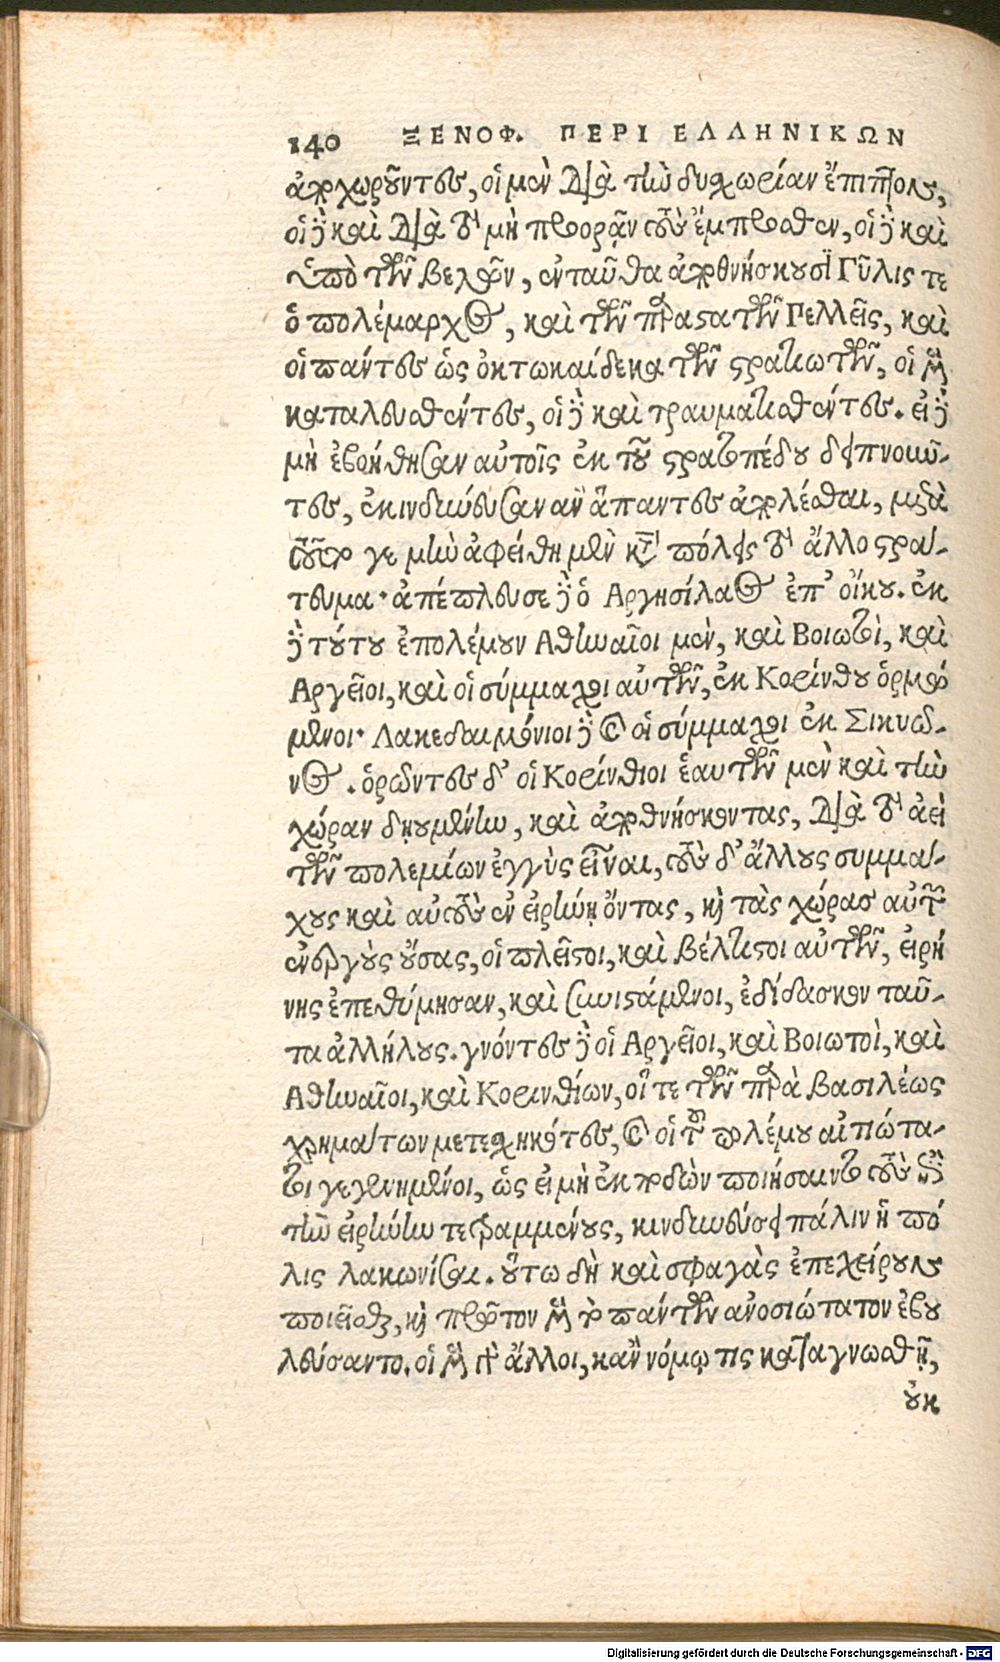 140 ΞΕΝΟΦ. ΠΕΡΙ ΕΛΛΗΝΙΚΩΝ
ἀποχωροῦντες, οἱ μὲν διὰ τὴν δυσχωρίαν ἔπιπτον,
οἱ δὲ καὶ διὰ τὸ μὴ προορᾷν τοὺς ἔμπροσθεν, οἱ δὲ καὶ
ὑπὸ τῶν βελῶν, ἐνταῦθα ἀποθνήσκουσι Γῦλις τε
ὁ πολέμαρχος, καὶ τῶν παραστατῶν Πελλεῖς, καὶ
οἱ πάντες ὡς ὀκτωκαίδεκα τῶν στρατιωτῶν, οἱ μὲν
καταλευσθέντες, οἱ δὲ καὶ τραυματισθέντες. εἰ δὲ
μὴ ἐβοήθησαν αὐτοῖς ἐκ τοῦ στρατοπέδου δειπνοιῶ-
τες, ἐκινδύνευσαν ἂν ἅπαντες ἀπολέσθαι, μετὰ
τοῦτο γε μὴν ἀφείθη μὲν κατὰ πόλεις τὸ ἄλλο στρά-
τευμα· ἀπέπλευσε δὲ ὁ Αργησίλαος ἐπ' οἴκου. ἐκ
δὲ τούτου ἐπολέμουν Αθηναῖοι μὲν, καὶ Βοιωτοὶ, καὶ
Αργεῖοι, καὶ οἱ σύμμαχοι αὐτῶν, ἐκ Κορίνθου ὁρμώ
μενοι· Λακεδαιμόνιοι δὲ καὶ οἱ σύμμαχοι ἐκ Σικυῶ-
νος. ὁρῶντες δ' οἱ Κορίνθιοι ἑαυτῶν μὲν καὶ τὴν
χώραν δῃουμένην, καὶ ἀποθνήσκοντας, διὰ τὸ ἀεὶ
τῶν πολεμίων ἐγγὺς εἶναι, τοὺς δ' ἄλλους συμμά-
χους καὶ αὐτοὺς ἐν εἰρήνῃ ὄντας, καὶ τὰς χώρας αὐτῶν
ἐνεργοὺς οὔσας, οἱ πλεῖστοι, καὶ βέλτιστοι αὐτῶν, εἰρή
νης ἐπεθύμησαν, καὶ συνιστάμενοι, ἐδίδασκον ταῦ-
τα ἀλλήλους. γνόντες δὲ οἱ Αργεῖοι, καὶ Βοιωτοὶ, καὶ
Αθηναῖοι, καὶ Κορινθίων, οἵ τε τῶν παρὰ βασιλέως
χρημάτων μετεσχηκότες, καὶ οἱ τοῦ πολέμου αἰτιώτα-
τοι γεγενημένοι, ὡς εἰ μὴ ἐκποδὼν ποιήσαιντο τοὺς ἐπὶ
τὴν εἰρήνην τετραμμένους, κινδυνεύσει πάλιν ἡ πό
λις λακωνίσαι. οὕτω δὴ καὶ σφαγὰς ἐπεχείρουν
ποιεῖσθαι, καὶ πρῶτον μὲν τὸ πάντων ἀνοσιώτατον ἐβου
λεύσαντο. οἱ μὲν γὰρ ἄλλοι, κἂν νόμῳ τις καταγνωσθῇ,
οὐκ
Digitalisierung gefördert durch die Deutsche Forschungsgemeinschaft - DFG